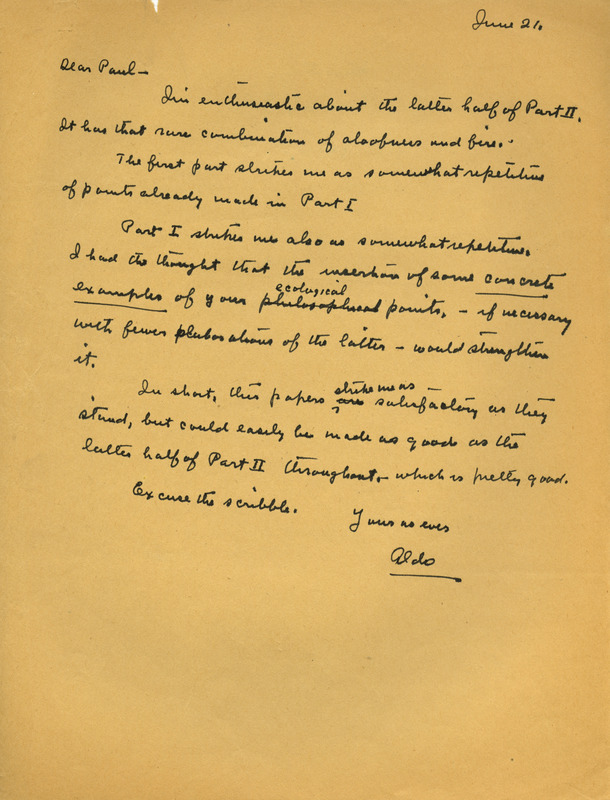 June 21.
Dear Paul—
I'm enthusiastic about the latter half of Part II.
It has that rare combination of aloofness and fire.
The first part strikes me as somewhat repetitive
of points already made in Part I
Part I strikes me also as somewhat repetitive.
I had the thought that the insertion of some concrete
ecological
examples of your philosophical points, – if necessary
with fewer elaborations of the latter – would strengthen
it.
strike me as
In short, the papers are satisfactory as they
stand, but could easily be made as good as the
latter half of Part II throughout, – which is pretty good.
Excuse the scribble.
Yours as ever
Aldo